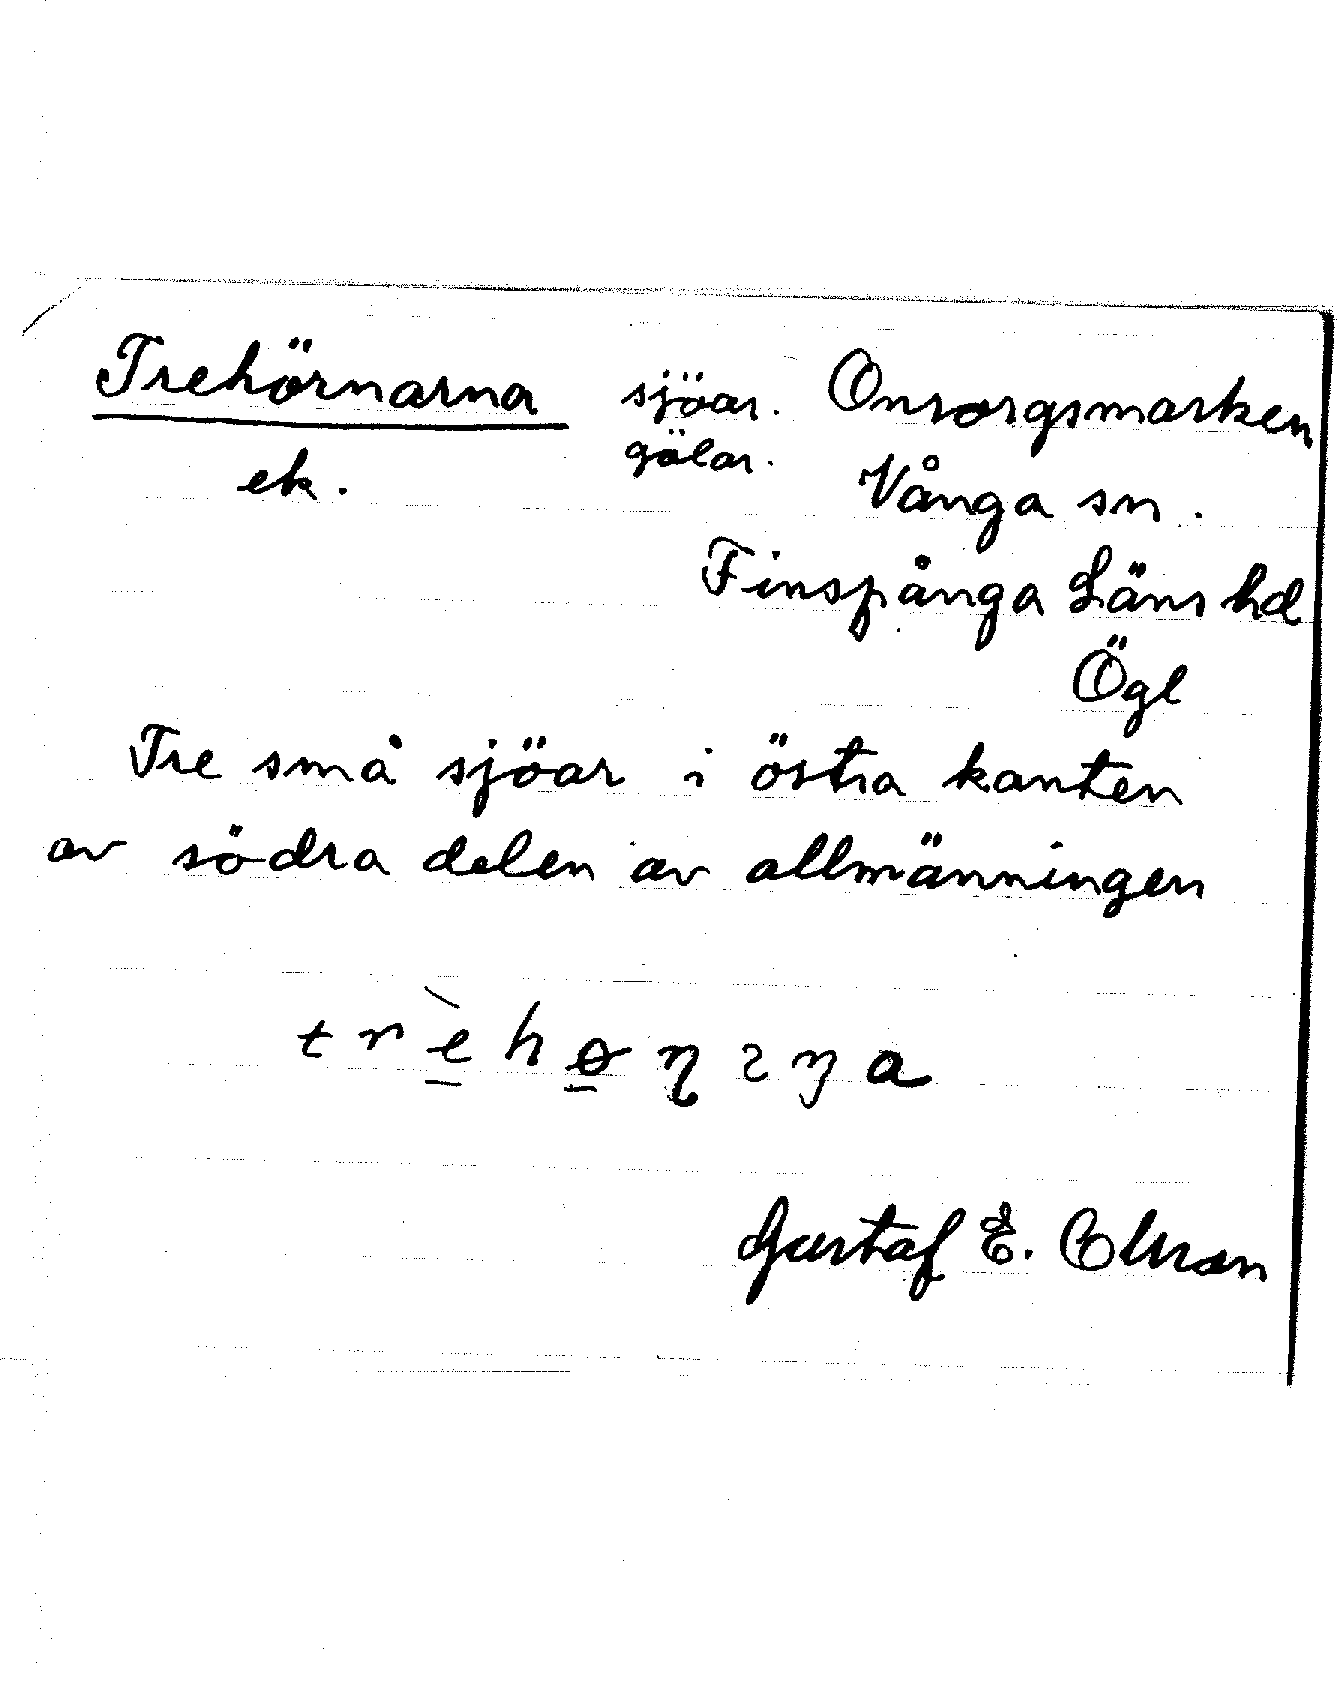 Trehörnarna sjöar. Onsorgsmarken
ek. gölar. Vånga sn.
Finspånga Läns hd
Ögl
Tre små sjöar i östra kanten
av södra delen av allmänningen
Gustaf E.